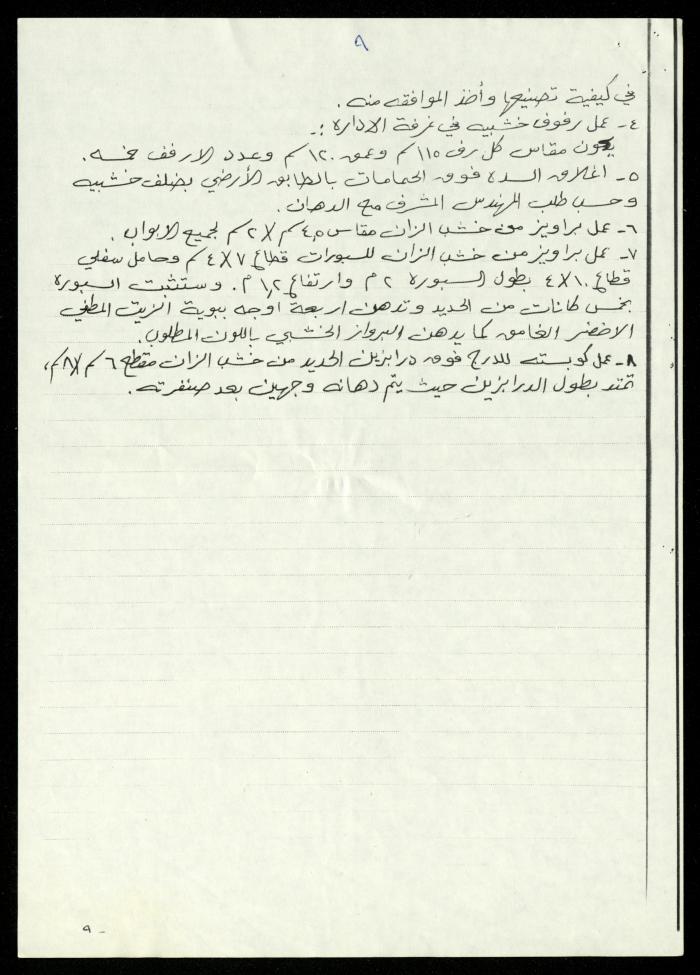 ٩
في كيفية تصنيعها وأخذ الموافقه منه .
٤ـ عمل رفوف خشبيه في غرفة الاداره :ـ
يكون مقاس كل رف ١١٥ سم وعمق ١٢٠ سم وعدد الارفف خمسه .
٥ـ اغلاق السده فوق الحمامات بالطابق الأرضي بضلف خشبيه
وحسب طلب المهندس المشرف مع الدهان .
٦ـ عمل براويز من خشب الزان مقاس ٤,٥ سم X ٢ سم لجميع الابواب .
٧ـ عمل براويز من خشب الزان للسبورات قطاع ٧ X ٤ سم وحامل سفلي
قطاع ١٠ X ٤ بطول السبوره ٢ م وارتفاع ١,٢ م . وستثبت السبورة
بخمس كانات من الحديد وتدهن اربعة اوجه ببوية الزيت المطفي
الاخضر الغامق كما يدهن البرواز الخشبي باللون المطلوب .
٨ـ عمل كوبسته للدرج فوق درابزين الحديد من خشب الزان مقطع ٦ سم X ٨ سم ،
تمتد بطول الدرابزين حيث يتم دهانه وجهين بعد صنفرته .
٩ -